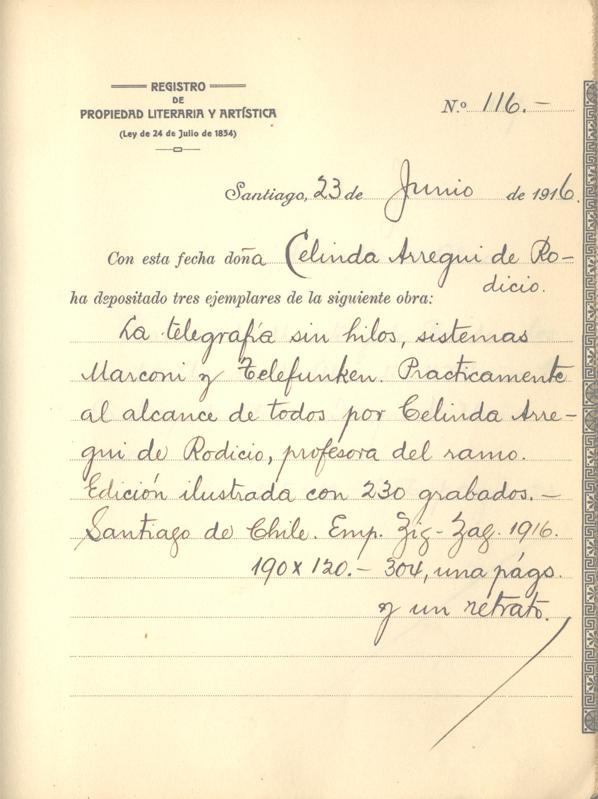 REGISTRO
DE
PROPIEDAD LITERARIA Y ARTÍSTICA
(Ley de 24 de Julio de 1834)
N.º 116.-
Santiago, 23 de Junio de 1916.
Con esta fecha doña Celinda Arregui de Ro-
dicio.
ha depositado tres ejemplares de la siguiente obra:
La telegrafía sin hilos, sistemas
Marconi y Telefunken. Practicamente
al alcance de todos por Celinda Arre-
gui de Rodicio, profesora del ramo.
Edición ilustrada con 230 grabados.-
Santiago de Chile. Emp. Zig-Zag. 1916.
190 x 120.- 304, una págs.
y un retrato.